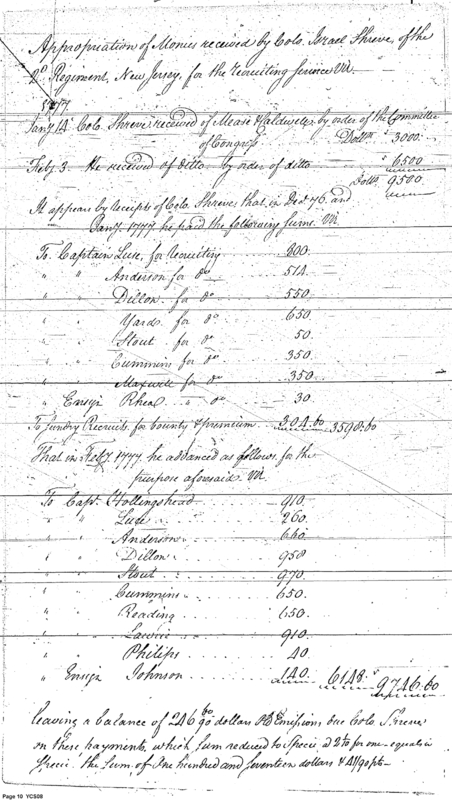 Appropriation of Monies received by Colo. Israel Shreve, of the
2d Regiment, New Jersey, for the recruiting service Viz.
1777
Jany. 14 Colo. Shreve received of Mease & Caldwell by order of the Committee
of Congress Dolls. 3000.
Feby. 3. He received of Ditto by order of ditto " 6500
Dolls. 9500
It appears by receipts of Colo. Shreve, that in Decr. 76. and
Jany. 1777. he paid the following sums. Viz.
To Captain Luse, for recruiting 800.
" " Anderson for do 514.
" " Dillon for do 550
" " Yard for do 650
" " Stout for do 50
" " Cummins for do 350
" " Maxwell for do 350
" Ensign Rhea " do 30
To sundry Recruits for bounty & premium. 304.60 3598.60
That in Feby. 1777. he advanced as follows. for the
purpose aforesaid. Viz.
To Capt. Hollingshead 910.
" " Luse 260.
" " Anderson 660.
" " Dillon 958
" " Stout 970.
" " Cummins 650.
" " Reading 650.
" " Lawrie 910.
" " Philips 40
" Ensign Johnson 140. 6148. 9746.60
leaving a balance of 246 60/90 dollars Old Emission, due Colo Shreve
on these payments, which sum reduced to Specie, a 2 1/10 for one equals in
Specie, the sum of One hundred and seventeen dollars & 41/90 pts
Page 10 YCS08